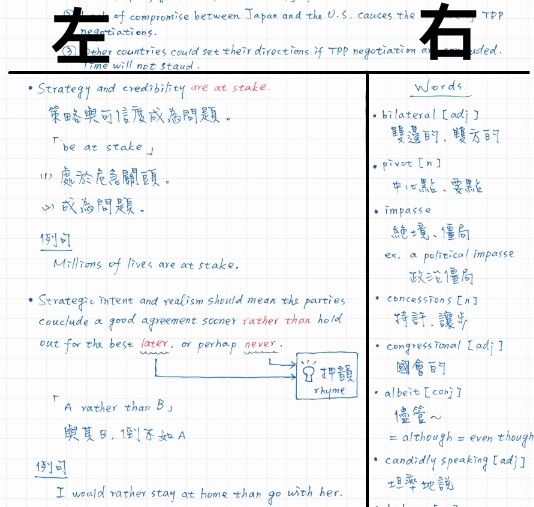 左
右
② Lack of compromise between Japan and the U.S. causes the TPP
negotiations.
③ Other countries could set their directions if TPP negotiation are concluded.
Time will not stand.
• Strategy and credibility are at stake.
策略與可信度成為問題。
「be at stake」
(1) 處於危急關頭。
(2) 成為問題。
例句
Millions of lives are at stake.
• Strategic intent and realism should mean the parties
conclude a good agreement sooner rather than hold
out for the best later, or perhap never.
押韻
rhyme
「A rather than B」
與其B，倒不如A
例句
I would rather stay at home than go with her.
Words
• bilateral [adj]
雙邊的、雙方的
• pivot [n]
中心點、要點
• impasse
絕境、僵局
ex. a political impasse
政治僵局
• concessions [n]
特許、讓步
• congressional [adj]
國會的
• albeit [conj]
儘管～
= although = even though
• candidly speaking [adj]
坦率地說